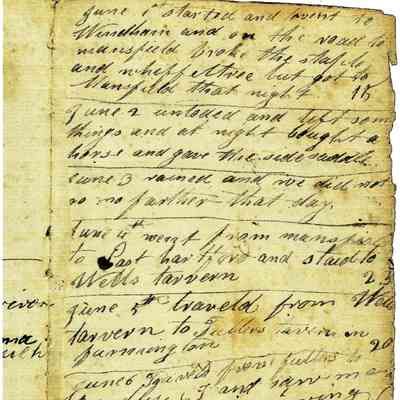 June 1st started and went to
Windham and on the road to
mansfield broke the staple
and whippeltree but got to
Mansfield that night 15
June 2 unloded and left som
things and at night bought a
horse and gave the sidesaddle
June 3 rained and we did not
go no farther that day.
June 4th went from mansfield
to East hartford and staid to
Wells tavern 23
June 5th traveld from Wells
tarvern to tavern in
farmington 20
June 6 from to
and saw